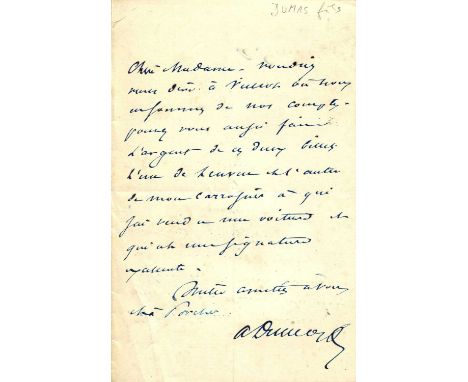 DUMAS fils
Chère Madame. voudriez
vous dire à
de nos comptes.
vous aussi faire
l'argent de ces deux billets
l'un de et l'autre
de mon carrossier à qui
j'ai vendu une voiture et
qui a une signature
excellente.
amitiés à vous
et à Porcher
A Dumas f